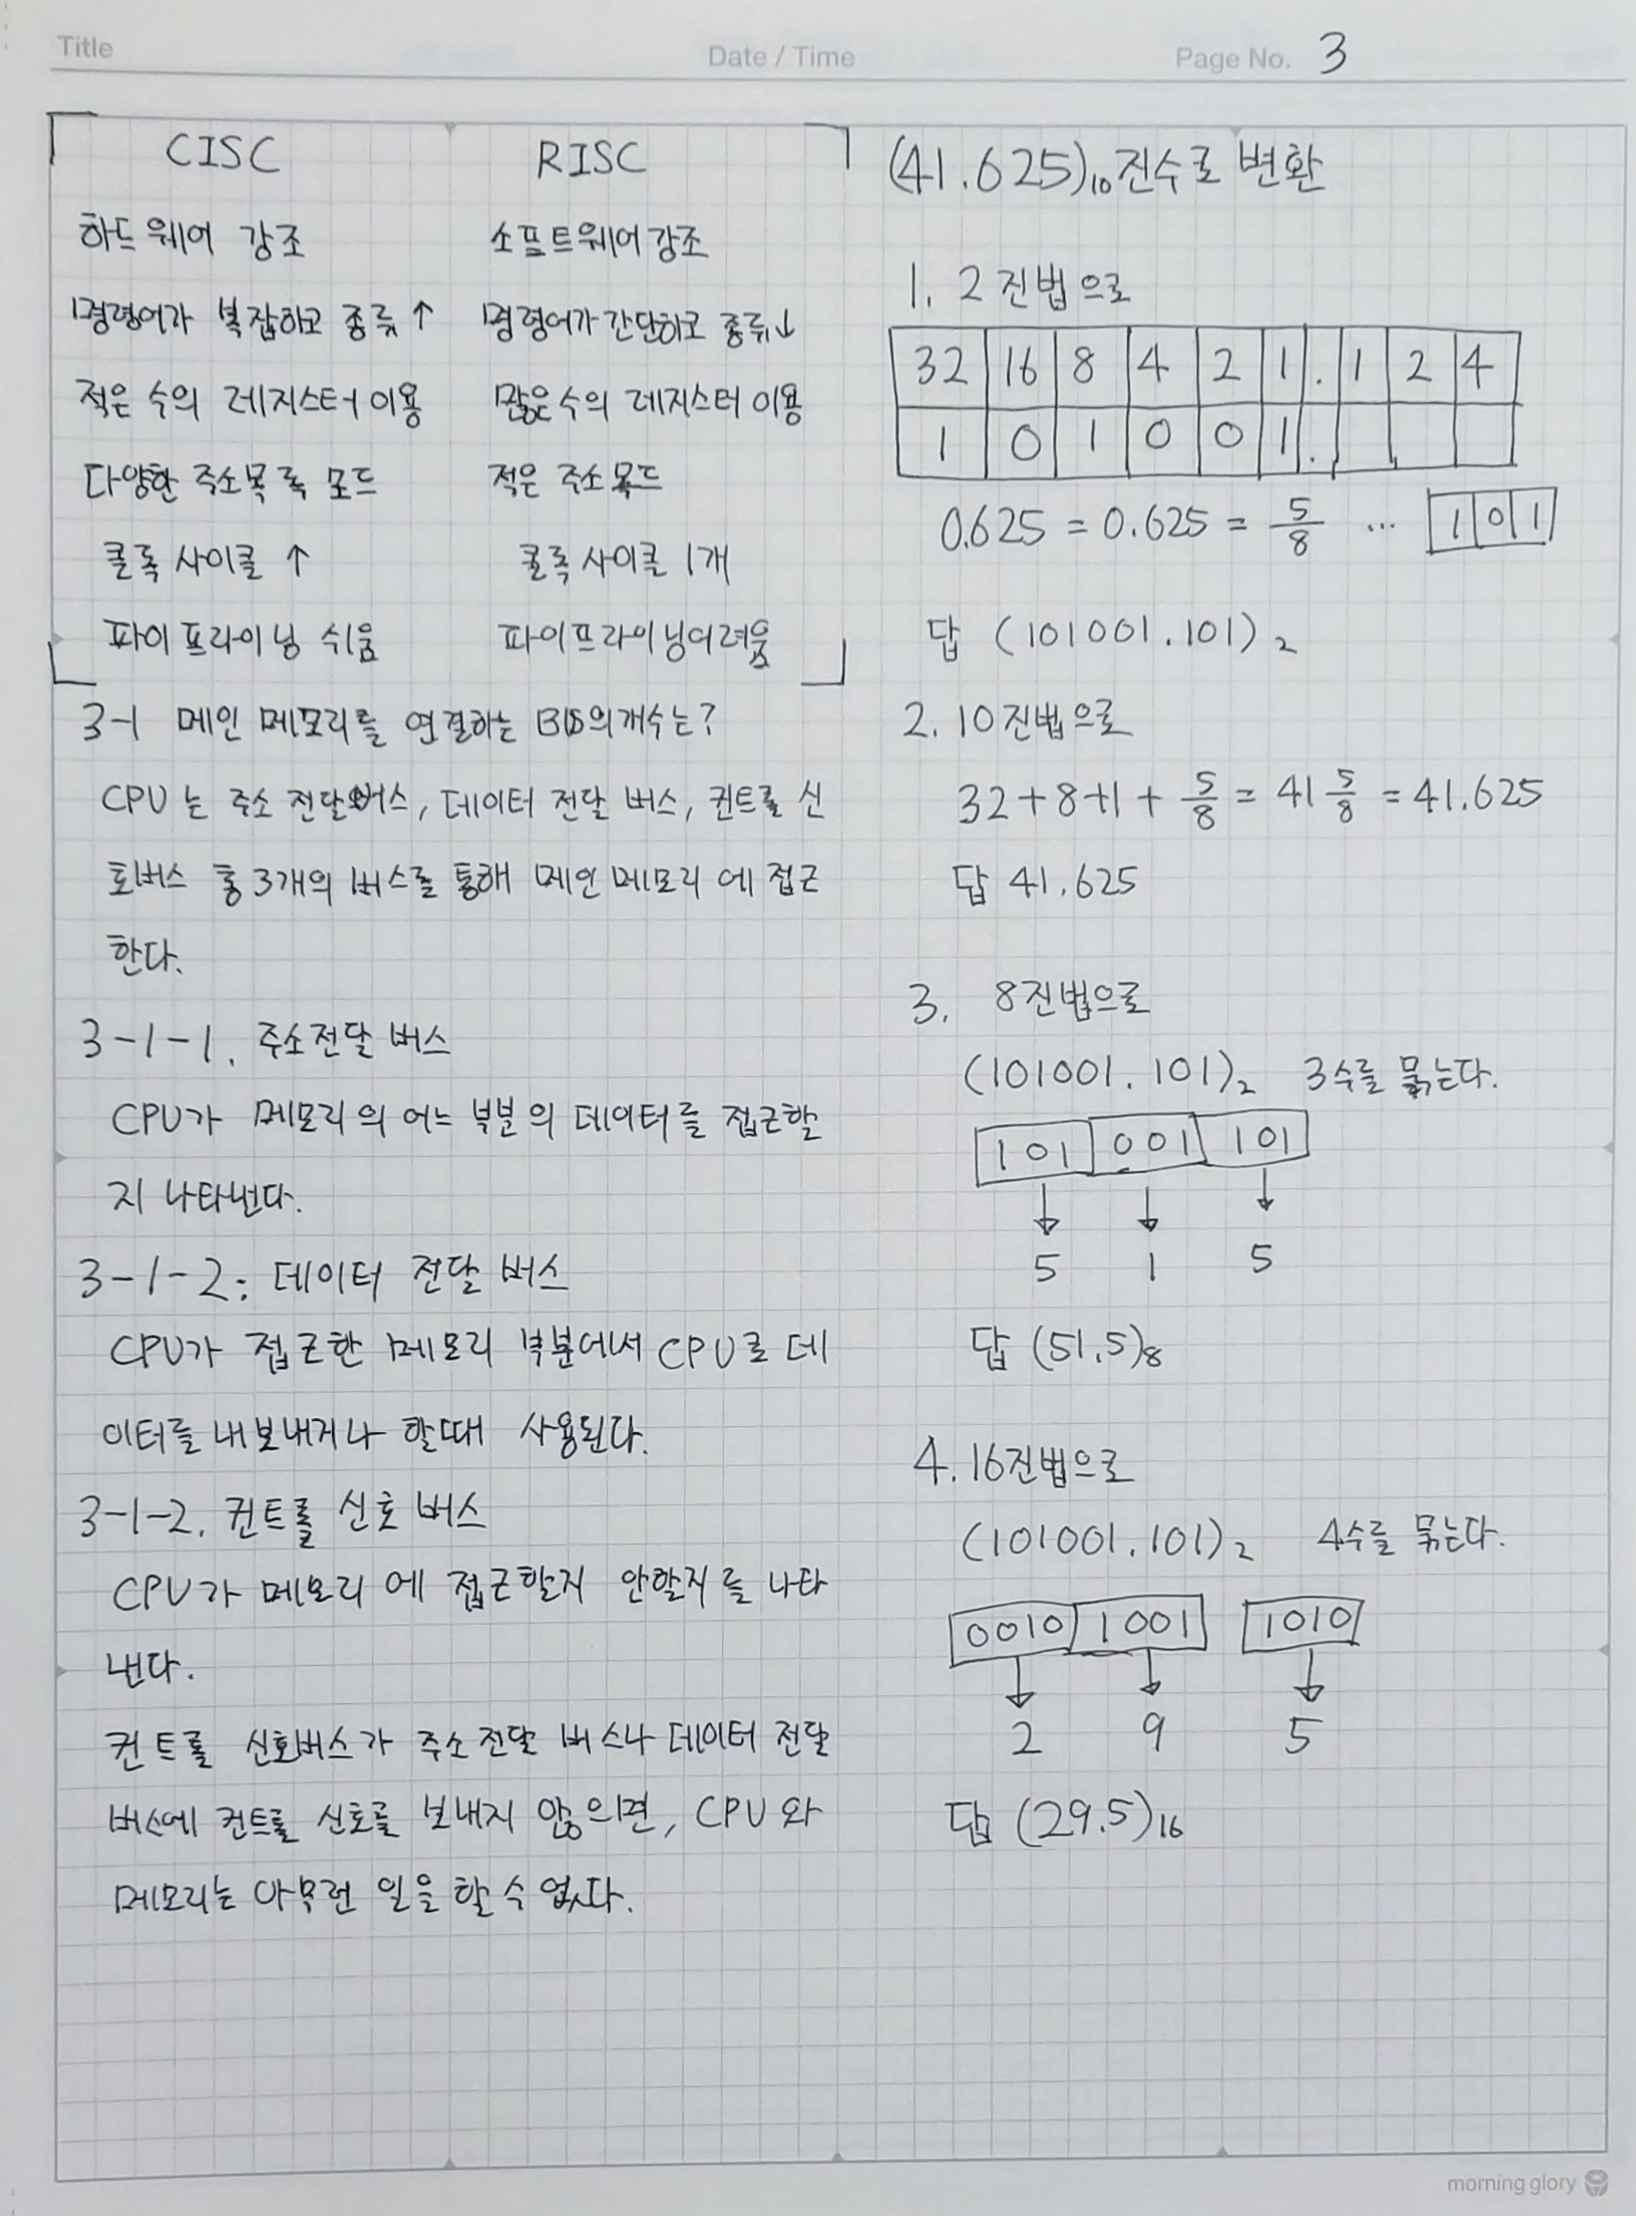 Title
Date / Time
Page No. 3
CISC RISC
하드웨어 강조 소프트웨어 강조
명령어가 복잡하고 종류↑ 명령어가 간단하고 종류↓
적은 수의 레지스터 이용 많은 수의 레지스터 이용
다양한 주소목록 모드 적은 주소 모드
클록 사이클 ↑ 클록 사이클 1개
파이프라이닝 쉬움 파이프라이닝 어려움
3-1 메인 메모리를 연결하는 BUS의 개수는?
CPU는 주소 전달 버스, 데이터 전달 버스, 컨트롤 신
호버스 총 3개의 버스를 통해 메인 메모리에 접근
한다.
3-1-1. 주소전달 버스
CPU가 메모리의 어느 부분의 데이터를 접근할
지 나타낸다.
3-1-2. 데이터 전달 버스
CPU가 접근한 메모리 부분에서 CPU로 데
이터를 내보내거나 할때 사용된다.
3-1-2. 컨트롤 신호 버스
CPU가 메모리에 접근할지 안할지를 나타
낸다.
컨트롤 신호버스가 주소 전달 버스나 데이터 전달
버스에 컨트롤 신호를 보내지 않으면, CPU와
메모리는 아무런 일을 할 수 없다.
(41.625)₁₀진수로 변환
1. 2진법으로
32 16 8 4 2 1 . 1 2 4
1 0 1 0 0 1 .
0.625 = 0.625 = 5/8 ... 1 0 1
답 (101001.101)₂
2. 10진법으로
32+8+1+ 5/8 = 41 5/8 = 41.625
답 41.625
3. 8진법으로
(101001.101)₂ 3수를 묶는다.
101 001 101
↓ ↓ ↓
5 1 5
답 (51.5)₈
4. 16진법으로
(101001.101)₂ 4수를 묶는다.
0010 1001 1010
↓ ↓ ↓
2 9 5
답 (29.5)₁₆
morning glory